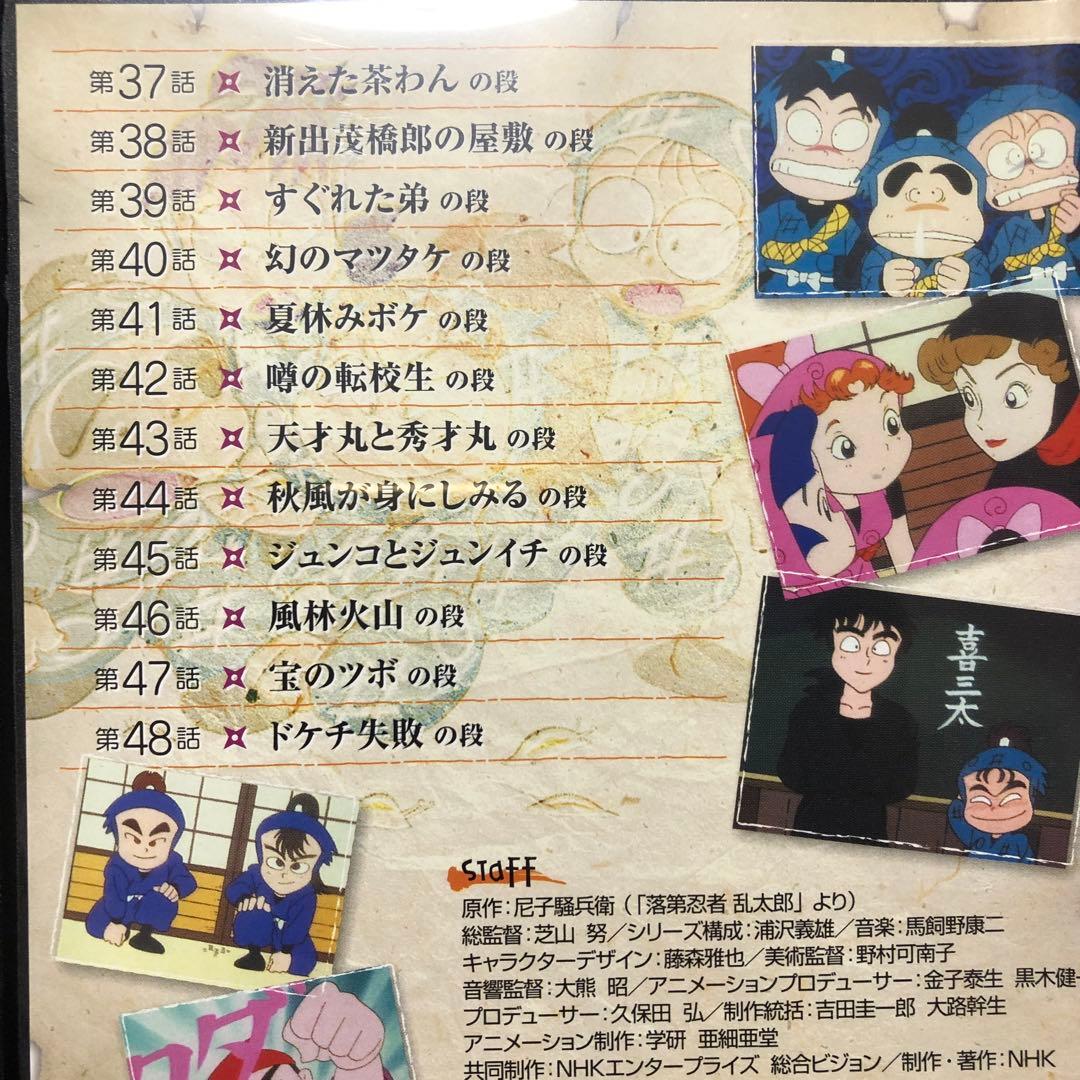 第37話 消えた茶わん の段
第38話 新出茂橋郎の屋敷 の段
第39話 すぐれた弟 の段
第40話 幻のマツタケ の段
第41話 夏休みボケ の段
第42話 噂の転校生 の段
第43話 天才丸と秀才丸 の段
第44話 秋風が身にしみる の段
第45話 ジュンコとジュンイチ の段
第46話 風林火山 の段
第47話 宝のツボ の段
第48話 ドケチ失敗 の段
喜三太
STaFF
原作:尼子騒兵衛(「落第忍者 乱太郎」より)
総監督:芝山 努/シリーズ構成:浦沢義雄/音楽:馬飼野康二
キャラクターデザイン:藤森雅也/美術監督:野村可南子
音響監督:大熊 昭/アニメーションプロデューサー:金子泰生 黒木健一
プロデューサー:久保田 弘/制作統括:吉田圭一郎 大路幹生
アニメーション制作:学研 亜細亜堂
共同制作:NHKエンタープライズ 総合ビジョン/制作・著作:NHK